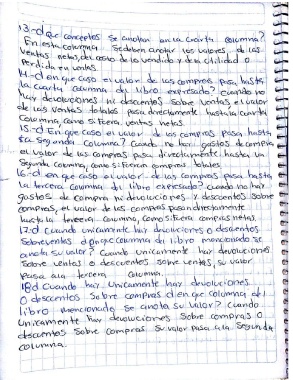 13-¿Que conceptos se anotan en la cuarta columna?
En esta columna se deben anotar los valores de las
ventas netas, del costo de lo vendido y de la utilidad o
perdida en ventas.
14-¿En que caso el valor de las compras pasa hasta
la cuarta columna del libro expresado? Cuando no
hay devoluciones ni descuentos sobre ventas el valor
de las ventas totales pasa directamente hasta la cuarta
columna, como si fueran ventas netas.
15-¿En que caso el valor de las compras pasa hasta
la segunda columna? Cuando no hay gastos de compra
el valor de las compras pasa directamente hasta la
segunda columna, como si fueran compras totales
16-¿En que caso el valor de las compras pasa hasta
la tercera columna del libro expresado? Cuando no hay
gastos de compra ni devoluciones y descuentos sobre
compras, el valor de las compras pasan directamente
hasta la tercera columna, como si fuera compras netas.
17-¿Cuando unicamente hay devoluciones o descuentos
sobre ventas a que columna del libro mencionado se
anota su valor? Cuando unicamente hay devoluciones
sobre ventas o descuentos sobre ventas, su valor
pasa a la tercera columna.
18-¿Cuando hay unicamente hay devoluciones
o descuentos sobre compras en que columna del
libro mencionado se anota su valor? Cuando
unicamente hay devoluciones sobre compras o
descuentos sobre compras su valor pasa a la segunda
columna.